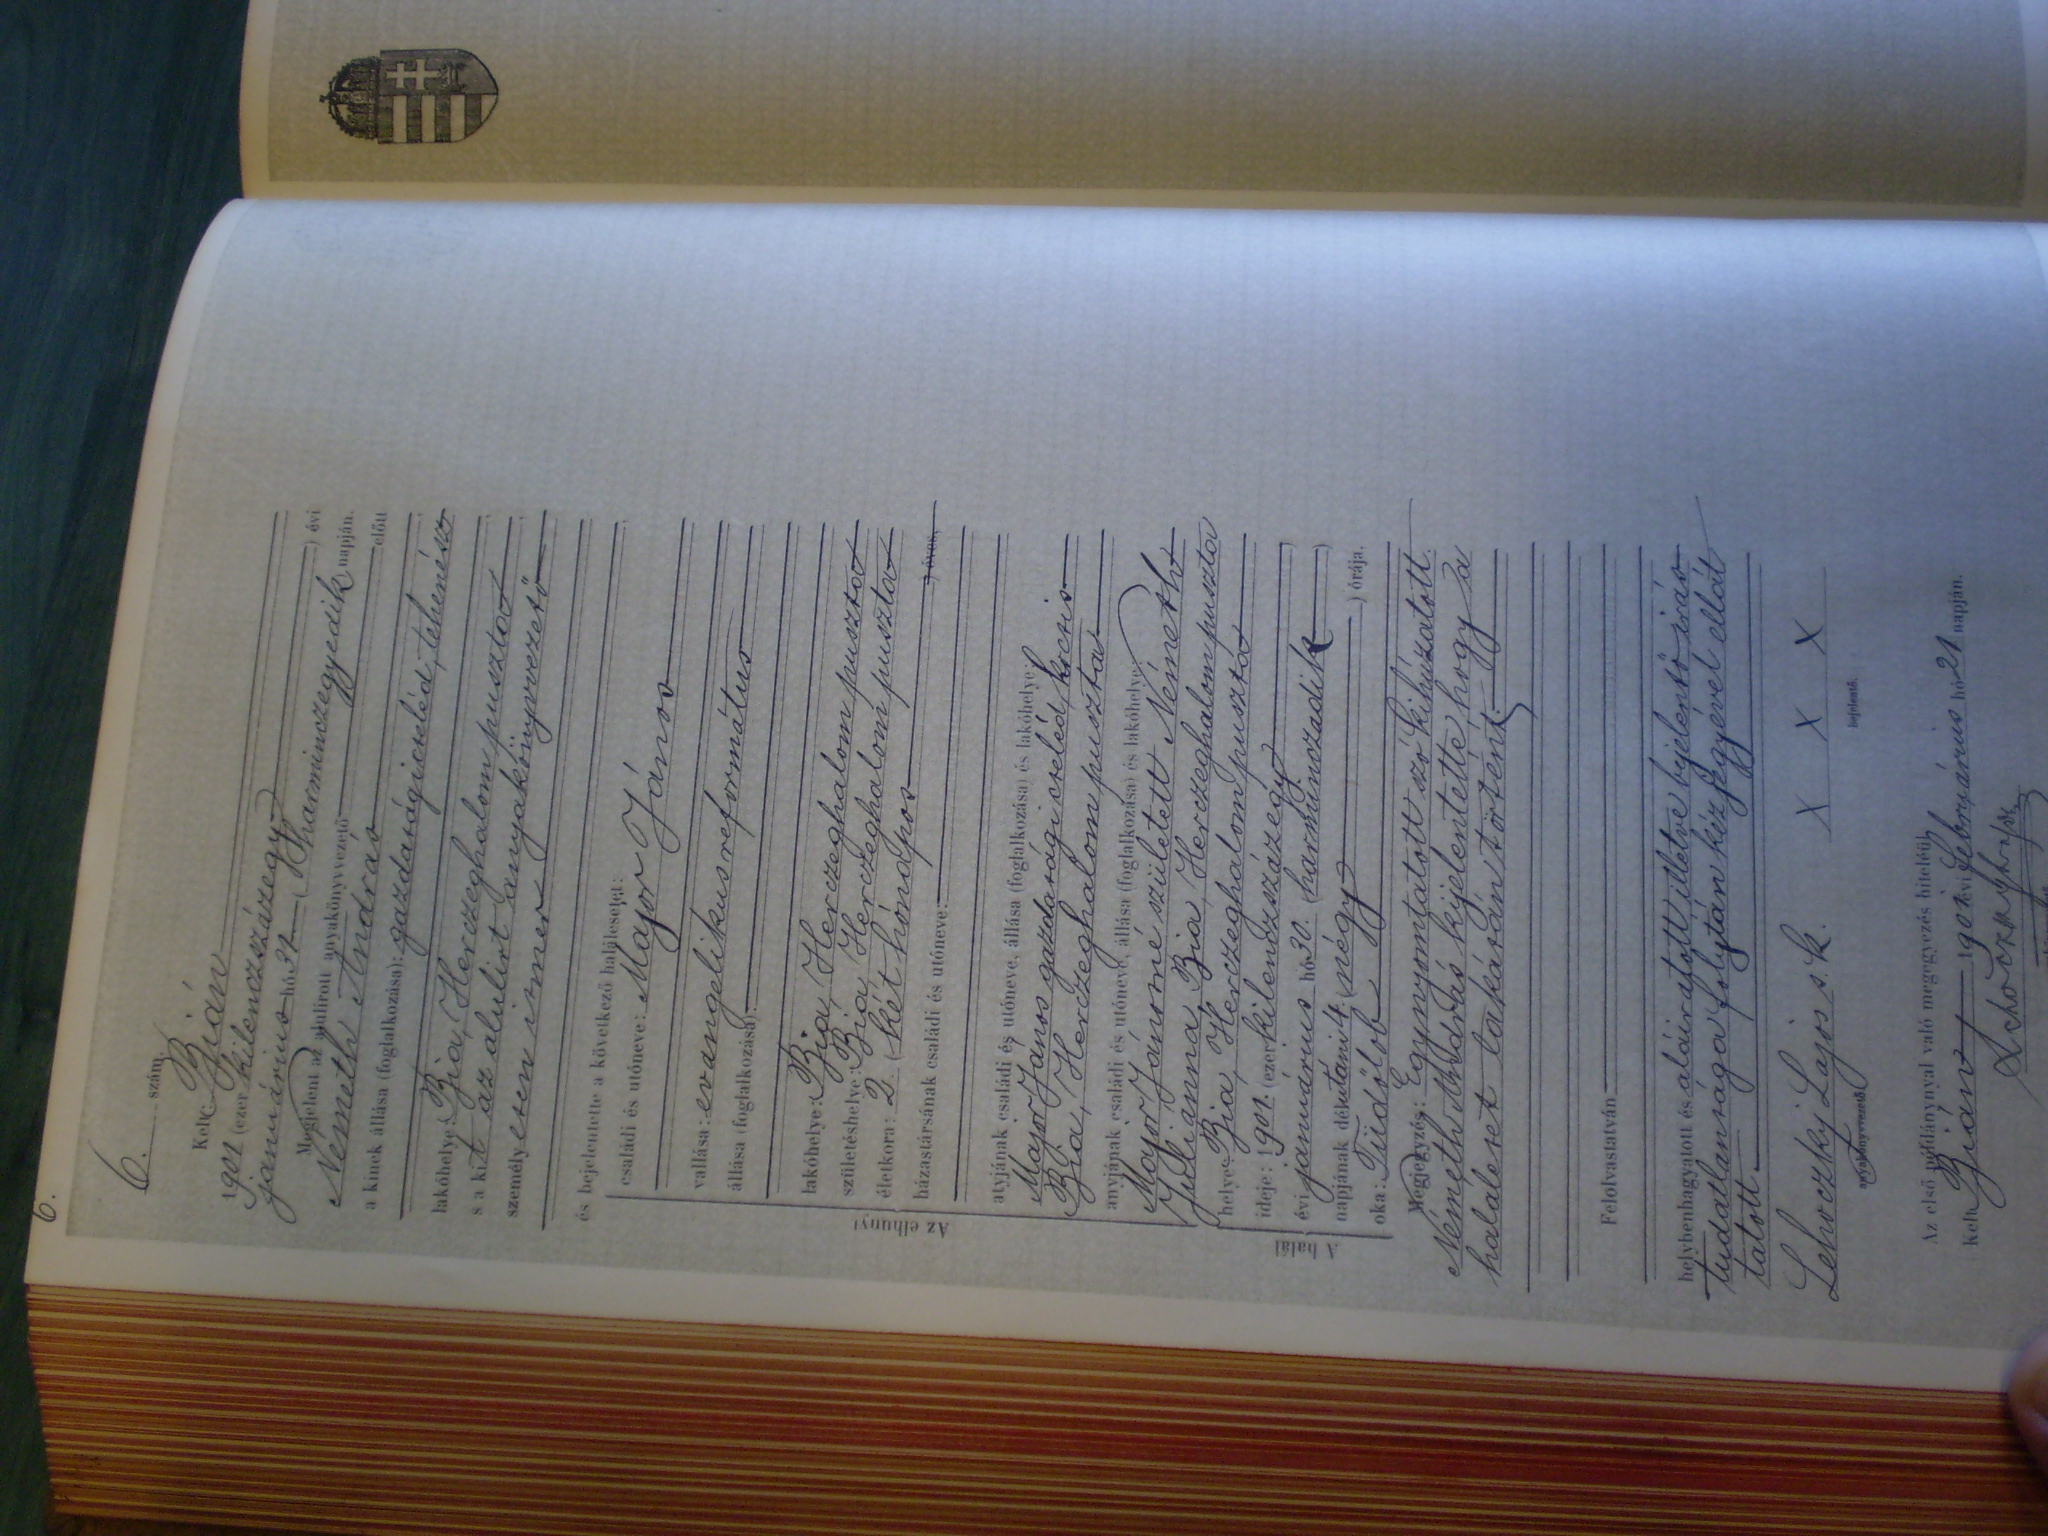 6.
6. szám.
Kelt: Bián
1901 (ezer kilenczszázegy) évi
január hó 31 (harminczegyedik) napján.
Megjelent az alulirott anyakönyvvezető előtt
Németh András
a kinek állása (foglalkozása): gazdasági cseléd, tehenész
lakóhelye: Bia, Herczeghalom puszta
s a kit az alulirt anyakönyvvezető
személyesen ismer
és bejelentette a következő halálesetet:
Az elhunyt
családi és utóneve: Major János
vallása: evangelikus református
állása (foglalkozása):
lakóhelye: Bia, Herczeghalom puszta
születéshelye: Bia, Herczeghalom puszta
életkora: 2. (két hónapos) éves,
házastársának családi és utóneve:
atyjának családi és utóneve, állása (foglalkozása) és lakóhelye:
Major János gazdasági cseléd, kocsis
Bia, Herczeghalom puszta
anyjának családi és utóneve, állása (foglalkozása) és lakóhelye:
Major Jánosné született Németh
Julianna, Bia, Herczeghalom puszta
A halál
helye: Bia, Herczeghalom puszta
ideje: 1901. (ezer kilenczszázegy)
évi január hó 30. (harminczadik)
napjának délutáni 4. (négy) órája.
oka: Tüdőlob
Megjegyzés: Egy nyomtatott szó kihúzatott.
Németh András kijelentette hogy a
haláleset lakásán történt.
Felolvastatván
helybenhagyatott és aláiratott illetve bejelentő irás
tudatlansága folytán kézjegyével ellát
tatott.
Lehoczky Lajos s.k. X X X
anyakönyvvezető bejelentő.
Az első példánynyal való megegyezés hiteléül:
Kelt Bián 1901 évi február hó 21 napján.
Lehoczky Lajos